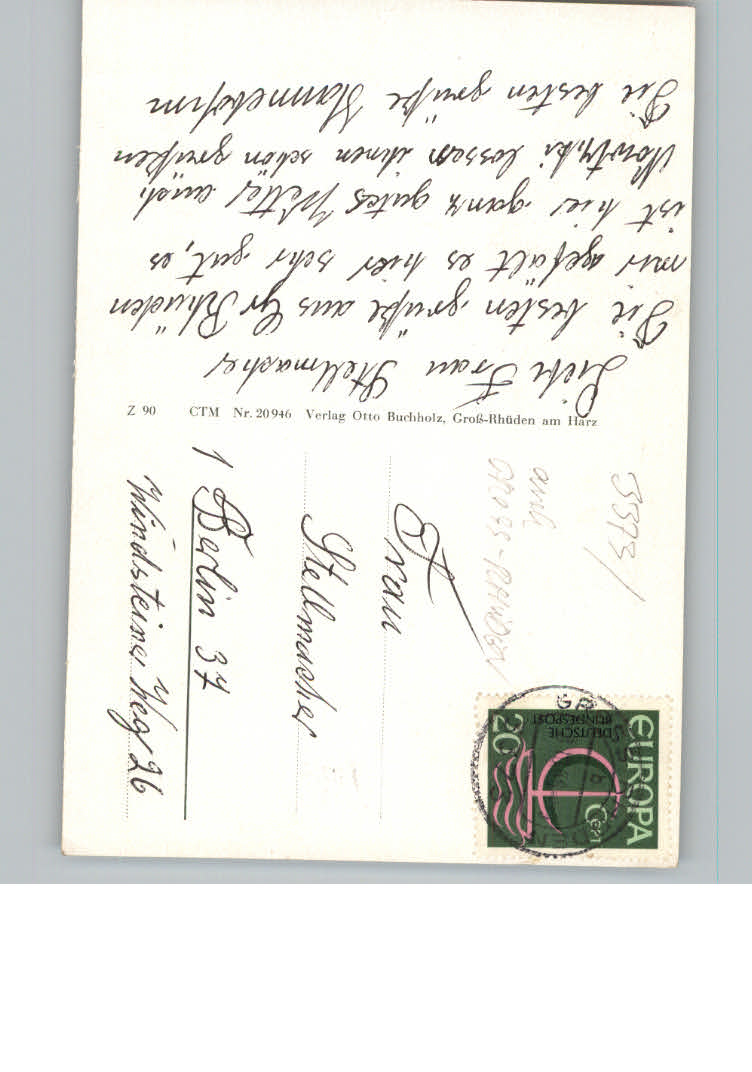 Liebe Frau Stellmacher
Die besten grüße aus Gr Rhüden
mir agefält es hier sehr gut, es
ist hier ganz gutes Wetter auch
lassen ihnen schön grüßen
Die besten grüße
Z 90 CTM Nr. 20946 Verlag Otto Buchholz, Groß-Rhüden am Harz
3373/
GROSS-RHÜDEN
Frau
Stellmacher
1 Berlin 37
Windsteiner Weg 26
EUROPA
CEPT
DEUTSCHE
BUNDESPOST
20